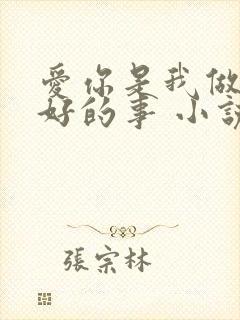 愛你是我做
好的事 小說
張宗林